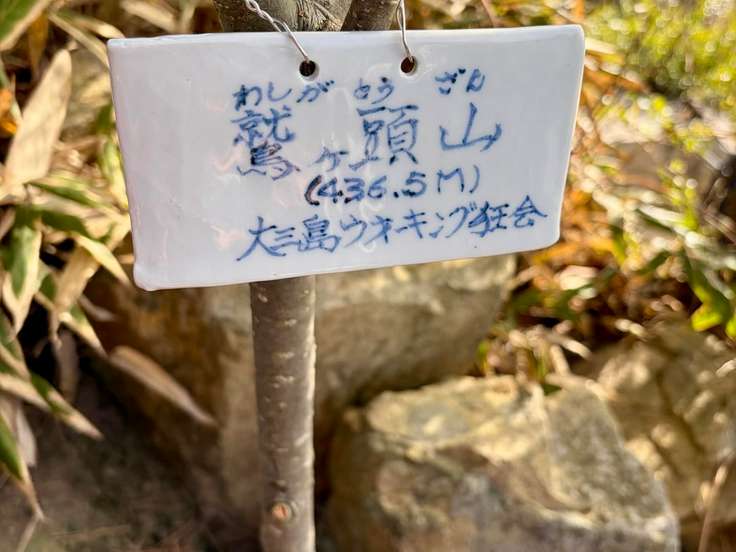 わしが とう ざん
鷲ヶ頭山
(436.5M)
大三島ウネキング狂会